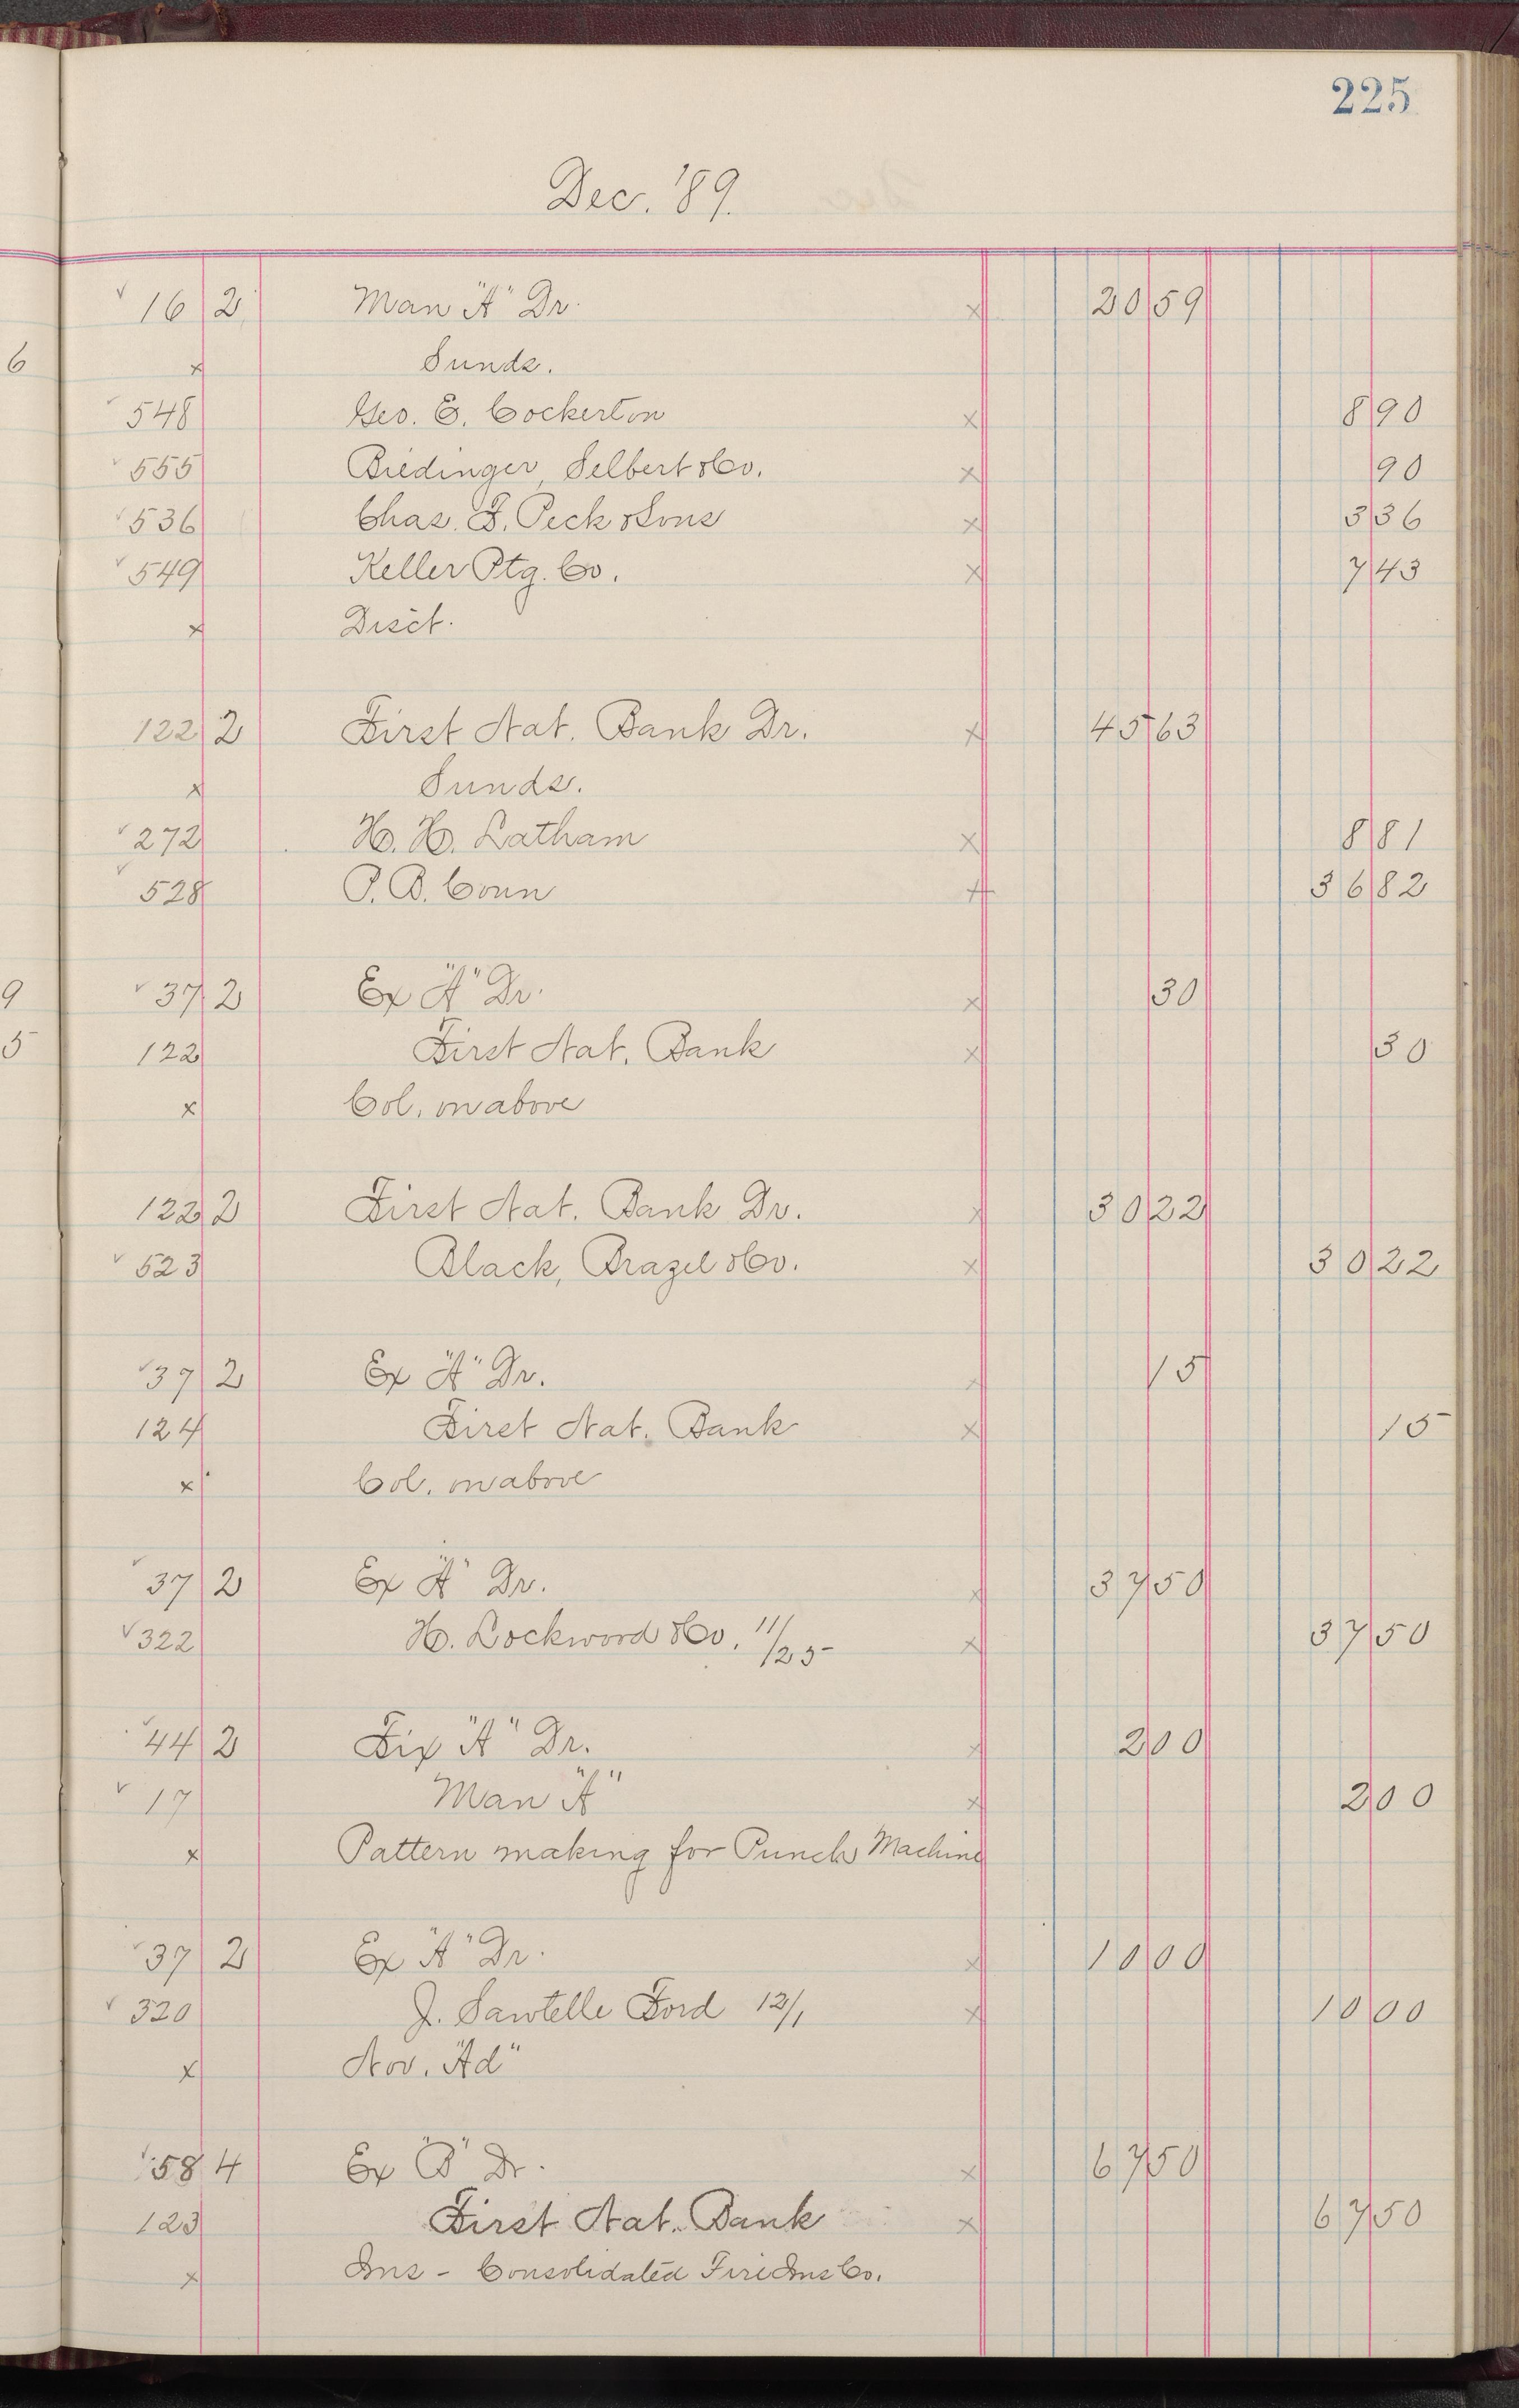 225
Dec. '89.
16 2 Man "A" Dr. x 20 59
6 x Sunds.
548 Geo. E. Cockerton x 8 90
555 Biedinger, Selbert & Co. x 90
536 Chas. F. Peck & Sons x 3 36
549 Keller Ptg. Co. x 7 43
x Disct.
122 2 First Nat. Bank Dr. x 45 63
x Sunds.
272 H. H. Latham x 8 81
528 P. B. Conn x 36 82
9 37 2 Ex "A" Dr. x 30
5 122 First Nat. Bank x 30
x Col. on above
122 2 First Nat. Bank Dr. x 30 22
523 Black, Brazel & Co. x 30 22
37 2 Ex "A" Dr. x 15
124 First Nat. Bank x 15
x Col. on above
37 2 Ex "A" Dr. x 37 50
322 H. Lockwood & Co. 11/25 x 37 50
44 2 Fix "A" Dr. x 2 00
17 Man "A" x 2 00
x Pattern making for Punch Machine
37 2 Ex "A" Dr. x 10 00
320 J. Sawtelle Ford 12/1 x 10 00
x Nov. "Ad"
58 4 Ex "B" Dr. x 67 50
123 First Nat. Bank x 67 50
x Ins - Consolidated Fire Ins Co.